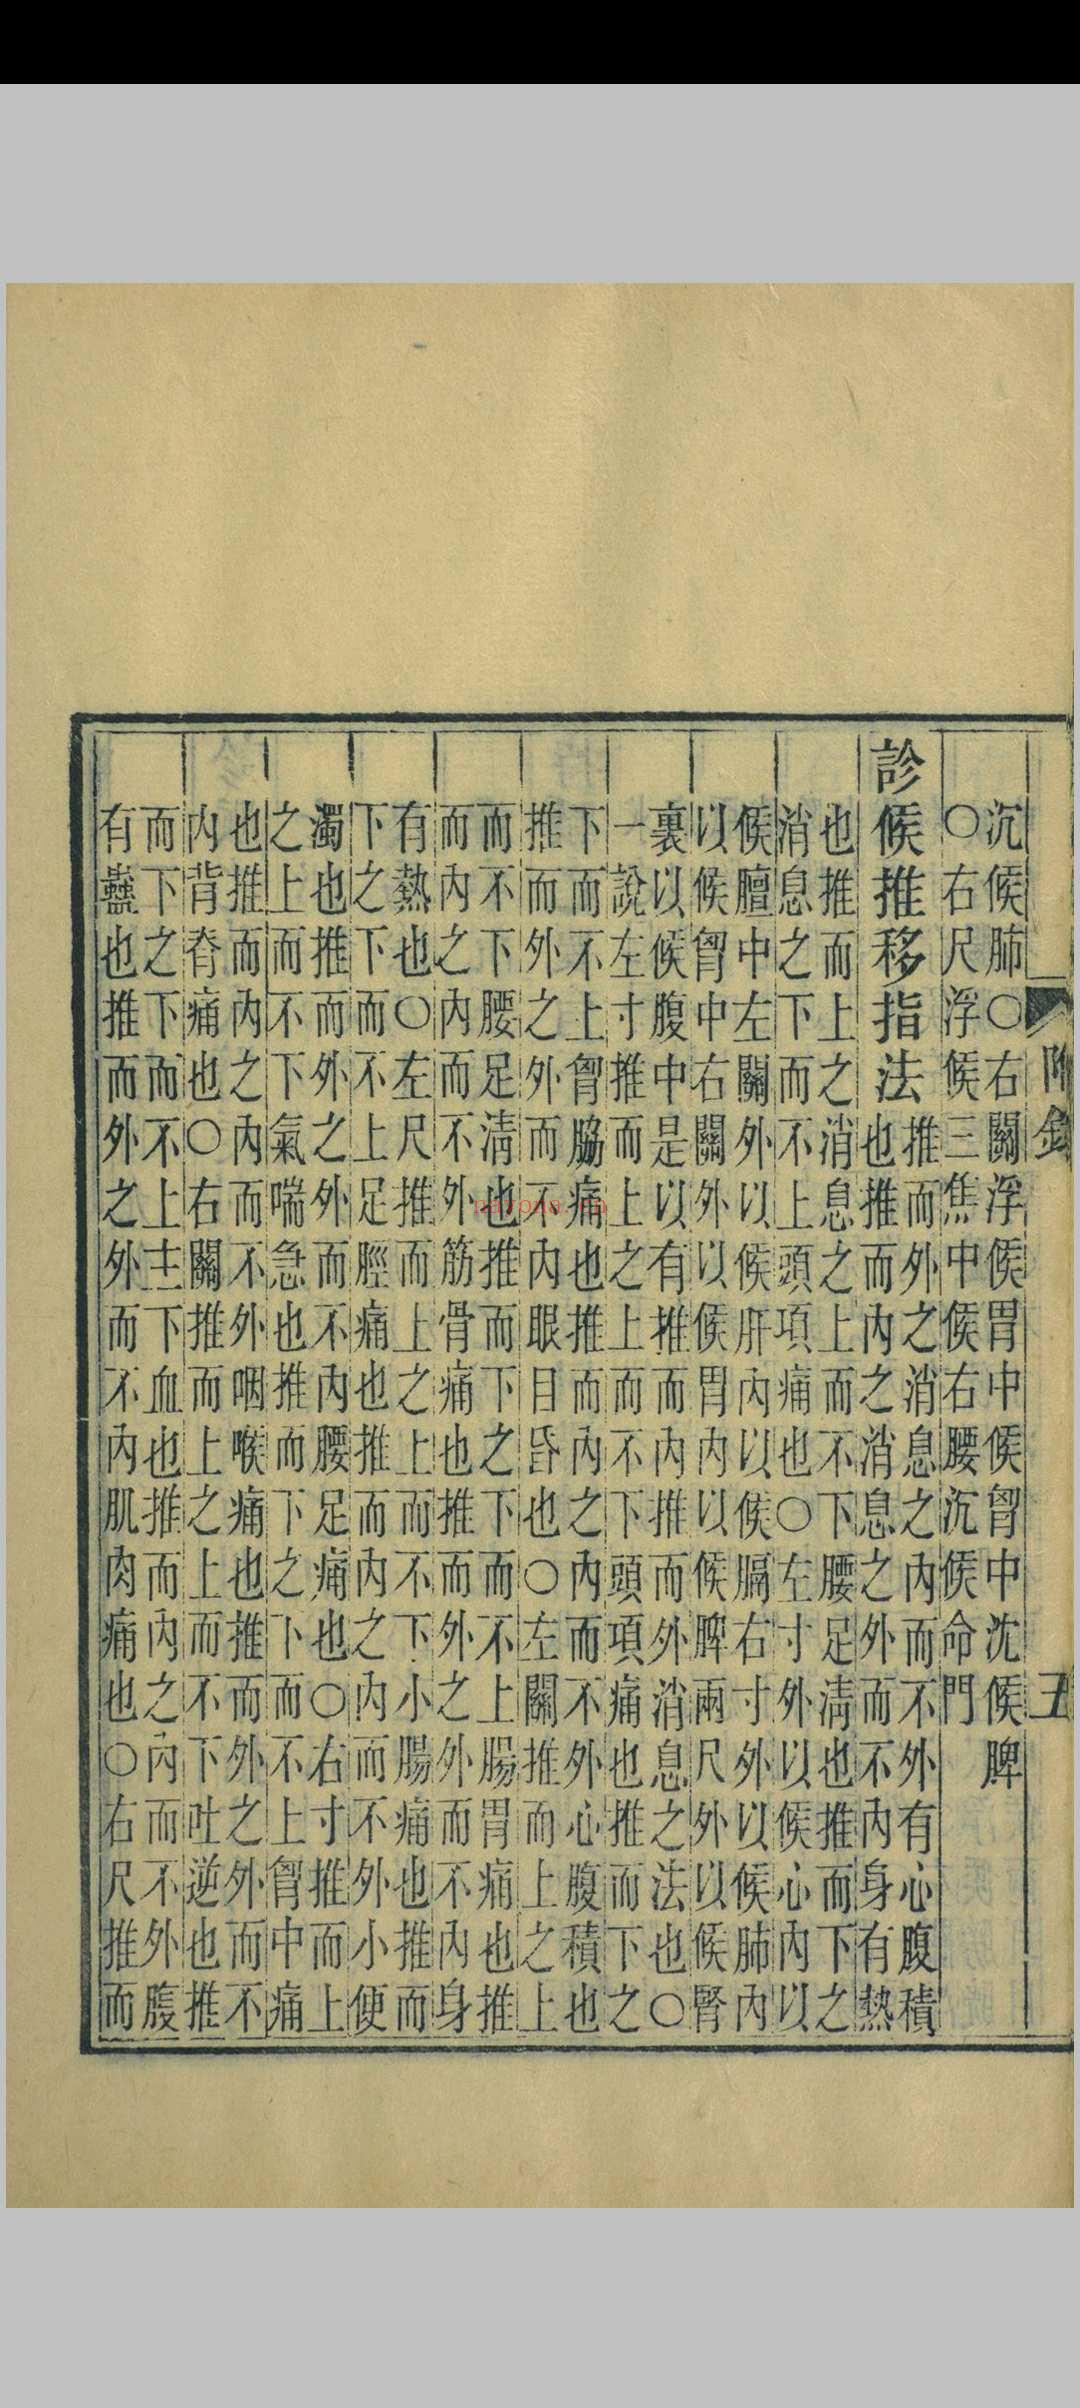 附錄 五
沉候肺○右關浮候胃中候胷中沈候脾
○右尺浮候三焦中候右腰沉候命門
診候推移指法
推而外之消息之內而不外有心腹積
也推而內之消息之外而不內身有熱
也推而上之消息之上而不下腰足淸也推而下之
消息之下而不上頭項痛也○左寸外以候心內以
候膻中左關外以候肝內以候膈右寸外以候肺內
以候胷中右關外以候胃內以候脾兩尺外以候腎
裏以候腹中是以有推而內推而外消息之法也○
一說左寸推而上之上而不下頭項痛也推而下之
下而不上胷脇痛也推而內之內而不外心腹積也
推而外之外而不內眼目昏也○左關推而上之上
而不下腰足淸也推而下之下而不上腸胃痛也推
而內之內而不外筋骨痛也推而外之外而不內身
有熱也○左尺推而上之上而不下小腸痛也推而
下之下而不上足脛痛也推而內之內而不外小便
濁也推而外之外而不內腰足痛也○右寸推而上
之上而不下氣喘急也推而下之下而不上胷中痛
也推而內之內而不外咽喉痛也推而外之外而不
內背脊痛也○右關推而上之上而不下吐逆也推
而下之下而不上主下血也推而內之內而不外腹
有蠱也推而外之外而不內肌肉痛也○右尺推而